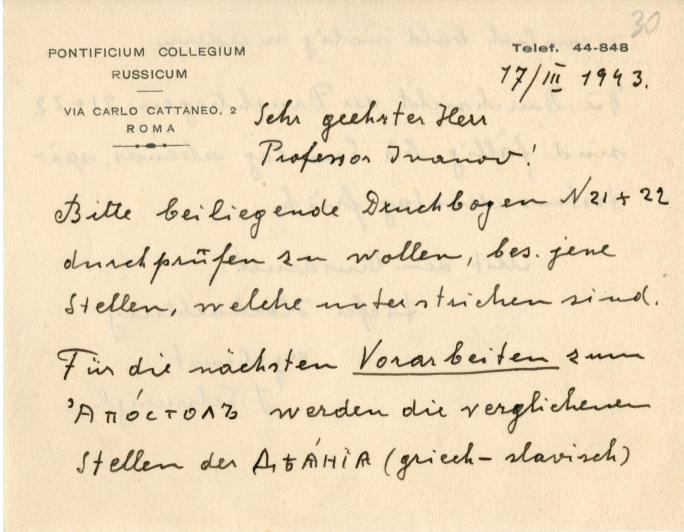 30
PONTIFICIUM COLLEGIUM
RUSSICUM
VIA CARLO CATTANEO, 2
ROMA
Telef. 44-848
17/III 1943.
Sehr geehrter Herr
Professor Ivanov!
Bitte beiliegende Druckbogen N 21 + 22
durchprüfen zu wollen, bes. jene
Stellen, welche unterstrichen sind.
Für die nächsten Vorarbeiten zum
'Апо́столъ werden die verglichenen
Stellen der Дѣѧ́нїѧ (griech-slavisch)